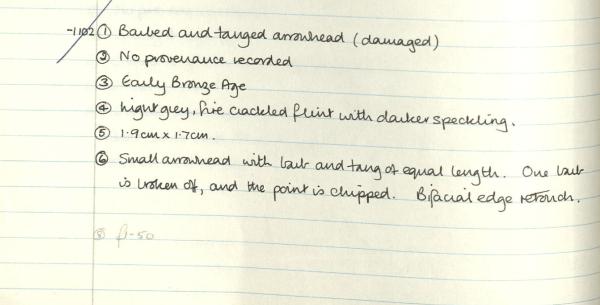 -1102 ① Barbed and tanged arrowhead (damaged)
② No provenance recorded
③ Early Bronze Age
④ Light grey, fire crackled flint with darker speckling.
⑤ 1.9cm x 1.7cm.
⑥ Small arrowhead with barb and tang of equal length. One barb
is broken of, and the point is chipped. Bifacial edge retouch.
⑧ fl-50